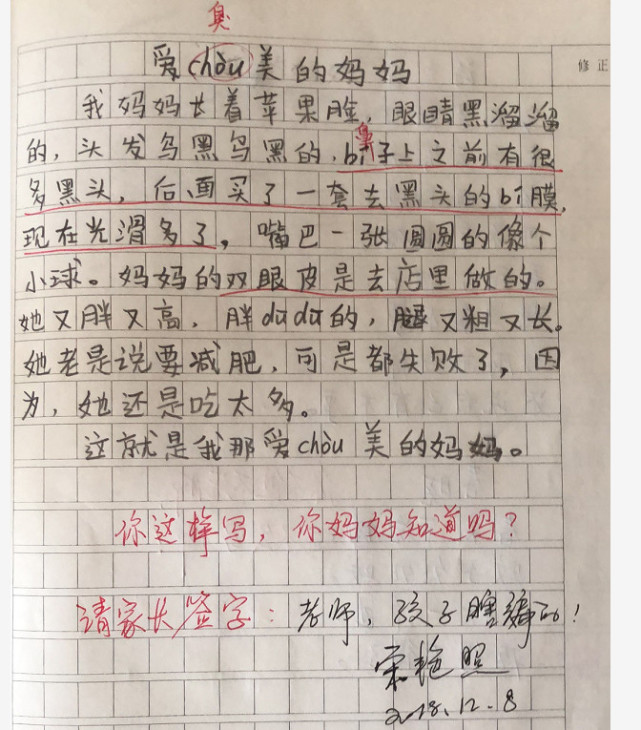 臭
修正
爱chòu美的妈妈
我妈妈长着苹果脸,眼睛黑溜溜
的,头发乌黑乌黑的,bí子上之前有很
鼻
多黑头,后面买了一套去黑头的bí膜,
现在光滑多了,嘴巴一张圆圆的像个
小球。妈妈的双眼皮是去店里做的。
她又胖又高,胖dūdū的,腿又粗又长。
她老是说要减肥,可是都失败了,因
为,她还是吃太多。
这就是我那爱chòu美的妈妈。
你这样写,你妈妈知道吗?
请家长签字:老师,孩子瞎编的!
荣艳照
2018.12.8